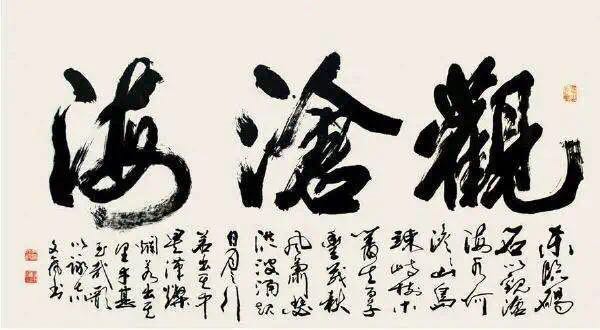 觀滄海
東臨碣
石以觀滄
海水何
澹澹山島
竦峙樹木
叢生百草
豐茂秋
風蕭瑟
洪波涌起
日月之行
若出其中
星漢燦
爛若出其
里幸甚
至哉歌
以詠志
書